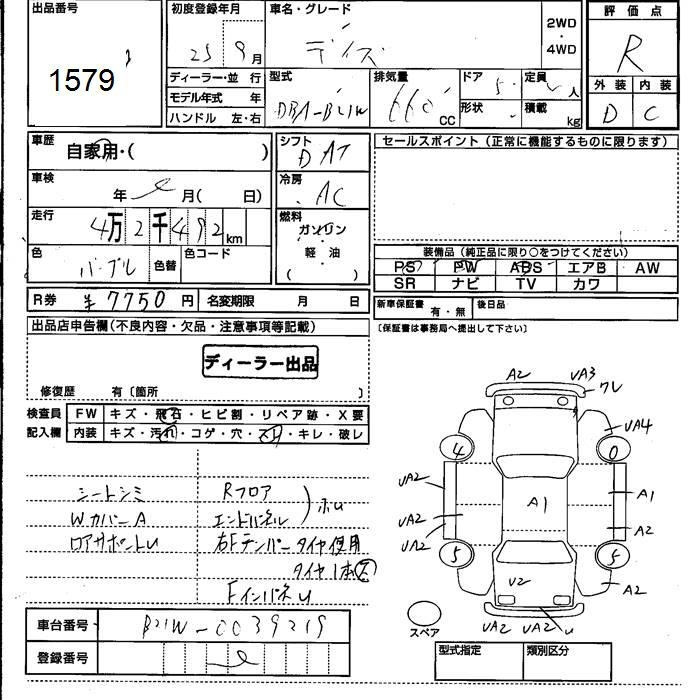 出品番号
1579
初度登録年月
25 9月
車名・グレード
デイズ
2WD
・
4WD
評価点
R
外装 内装
D C
ディーラー・並行
モデル年式 年
ハンドル 左・右
型式
DBA-B21W
排気量
660 CC
ドア 5
形状
定員 人
積載 kg
車歴
自家用・( )
車検
年 月( 日)
走行
4万2千492km
色
パープル
色替
色コード
シフト
DAT
冷房
AC
燃料
ガソリン
・
軽油
( )
セールスポイント(正常に機能するものに限ります)
装備品(純正品に限り○をつけてください)
PS PW ABS エアB AW
SR ナビ TV カワ
R券 ¥7750円 名変期限 月 日
新車保証書 有・無 後日品
〔保証書は事務局へ提出して下さい〕
出品店申告欄(不良内容・欠品・注意事項等記載)
ディーラー出品
修復歴 有〔箇所 〕
検査員
記入欄
FW キズ・飛石・ヒビ割・リペア跡・X要
内装 キズ・汚れ・コゲ・穴・スレ・キレ・破レ
シートシミ
WカバーA
ロアサポートU
Rフロア
エンドパネル
ホU
右Fテンパータイヤ使用
タイヤ1本
FインパネU
車台番号 B21W-0039219
登録番号
A2 UA3
ワレ
UA4
4 0
UA2
UA2
UA2
A1
A1
A2
5 5
V2
A2
UA2 UA2 U
スペア
型式指定 類別区分